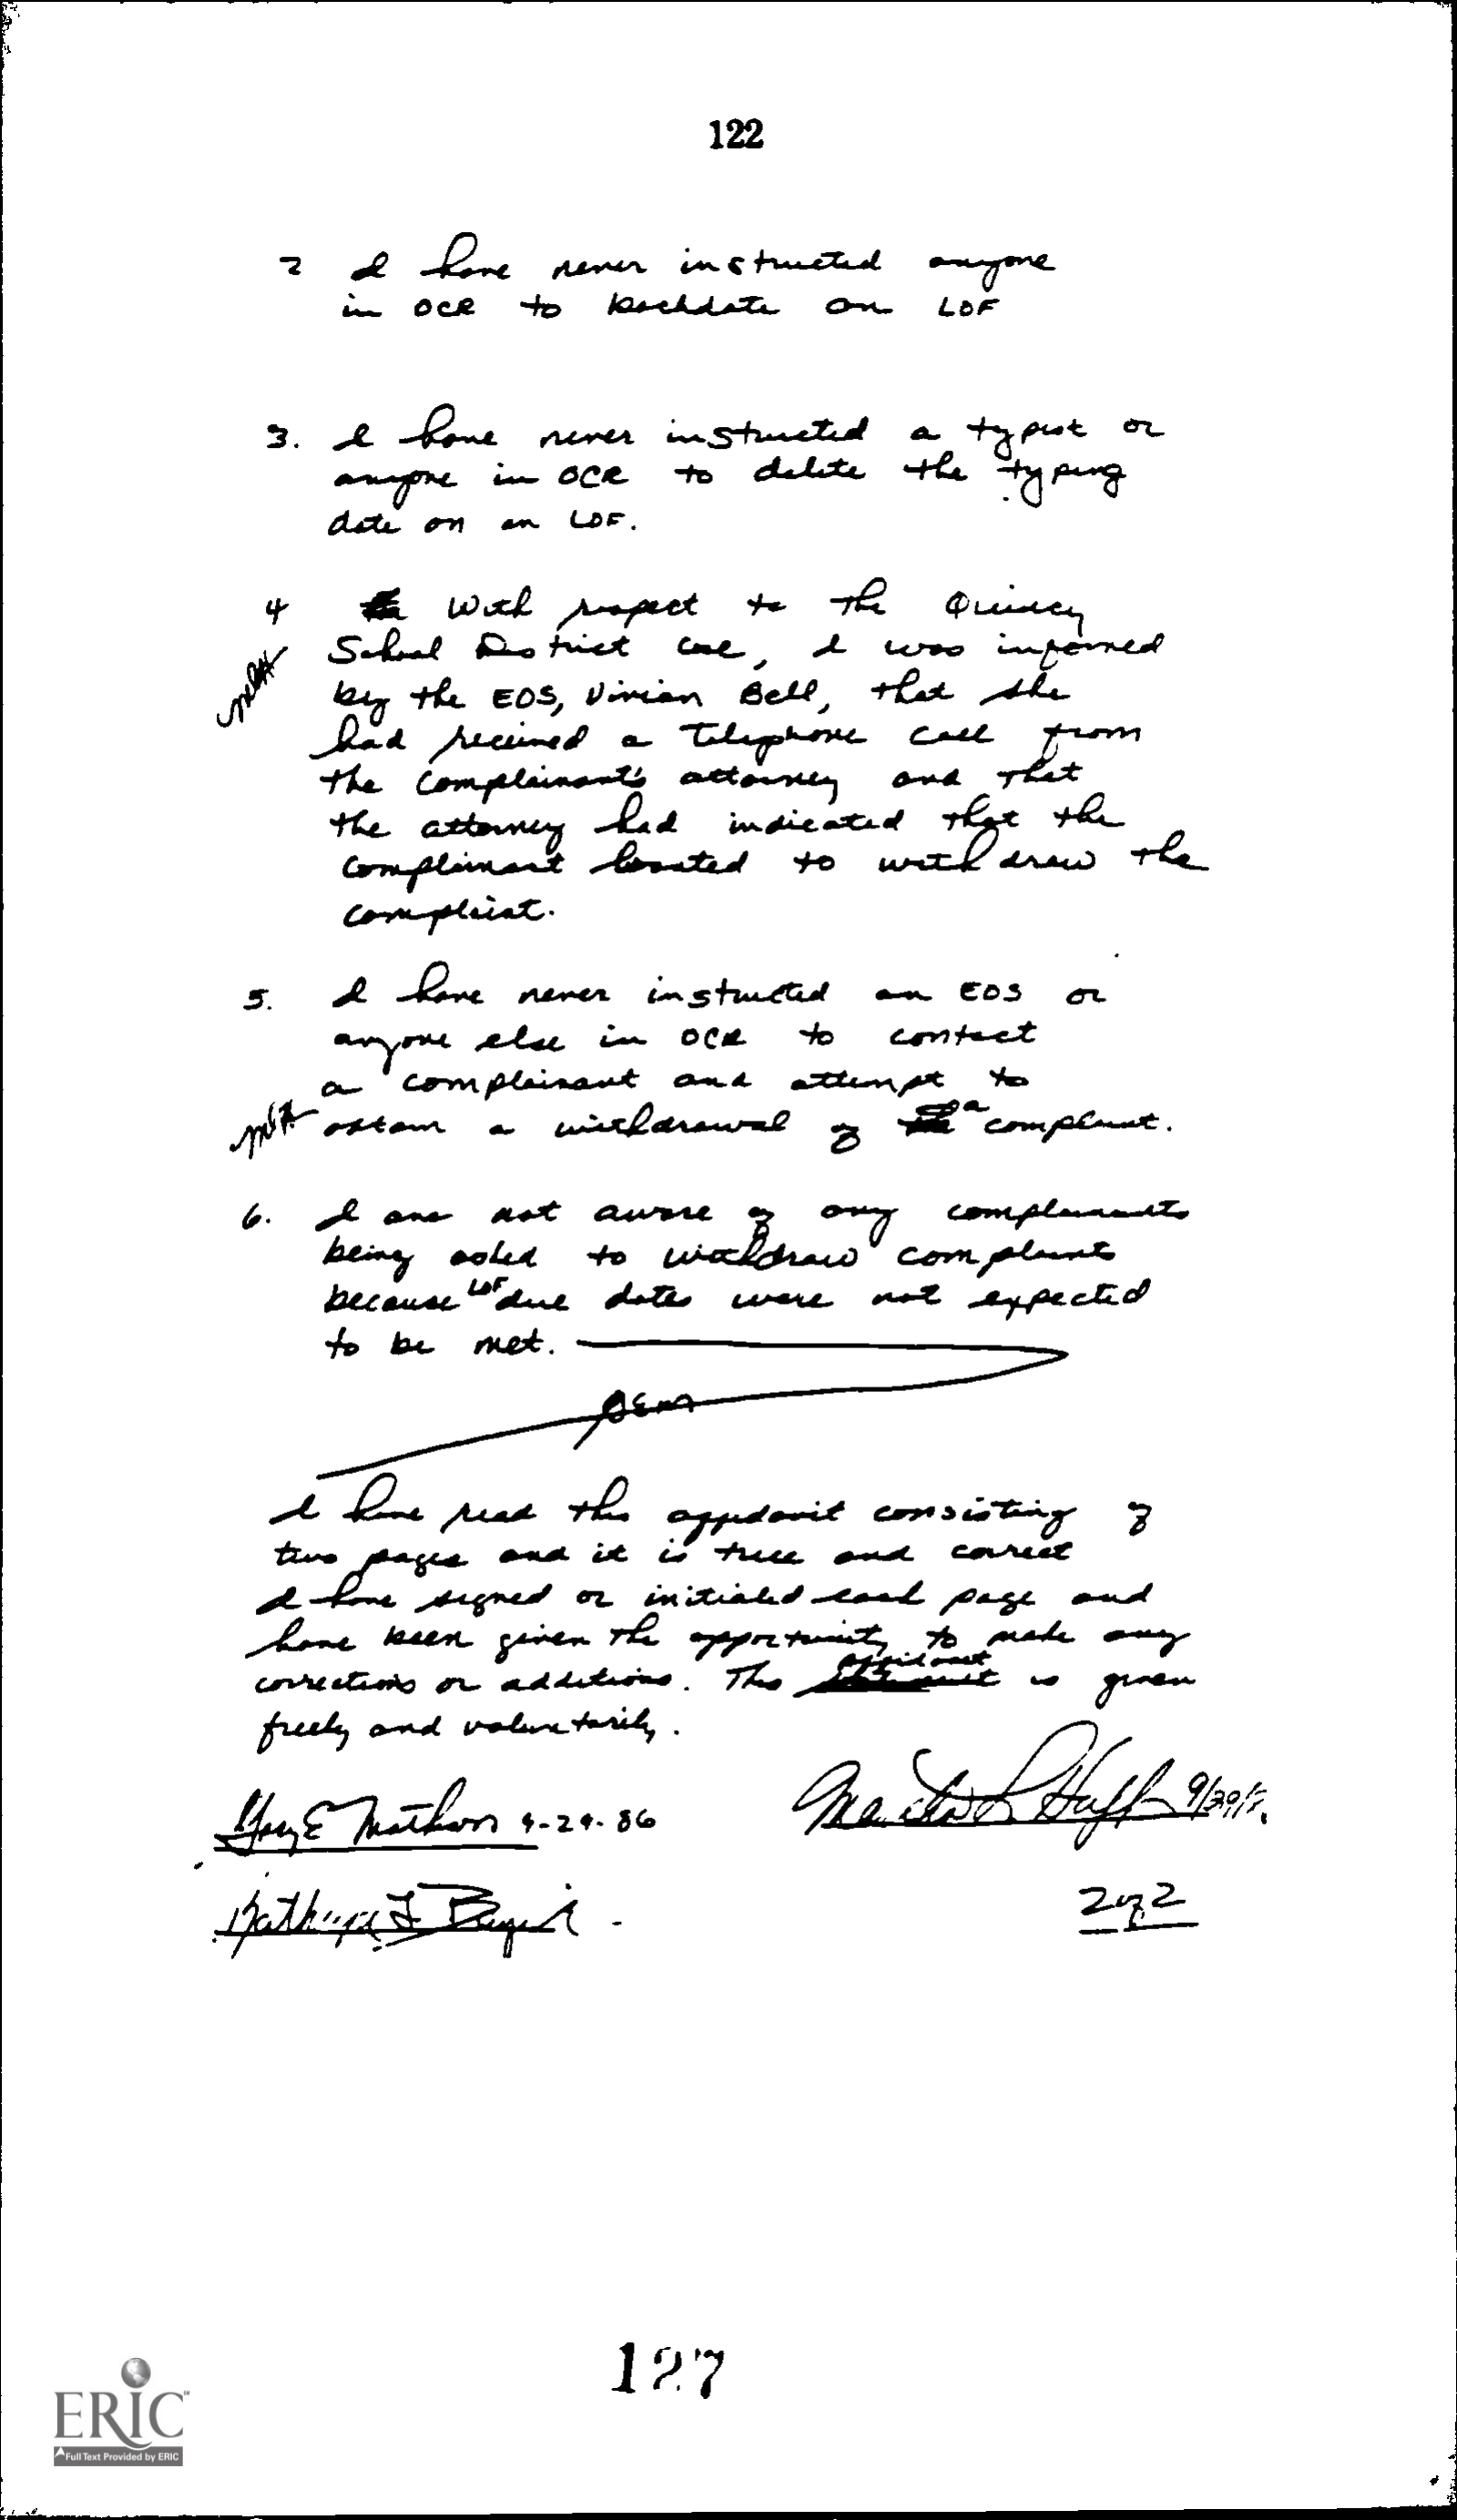 122
2 I have never instructed anyone
in OCR to backdate an LOF
3. I have never instructed a typist or
anyone in OCR to delete the typing
date on an LOF.
4 With respect to the Quincy
School District case, I was informed
by the EOS, Vivian Bell, that she
had received a telephone call from
the complainant's attorney and that
the attorney had indicated that the
complainant wanted to withdraw the
complaint.
5. I have never instructed an EOS or
anyone else in OCR to contact
a complainant and attempt to
obtain a withdrawal of a complaint.
6. I am not aware of any complainants
being asked to withdraw complaints
because LOF due dates were not expected
to be met.
I have read this affidavit consisting of
two pages and it is true and correct
I have signed or initialed each page and
have been given the opportunity to make any
corrections or additions. This affidavit is given
freely and voluntarily.
E 9-29-86
2 of 2
127
ERIC
Full Text Provided by ERIC